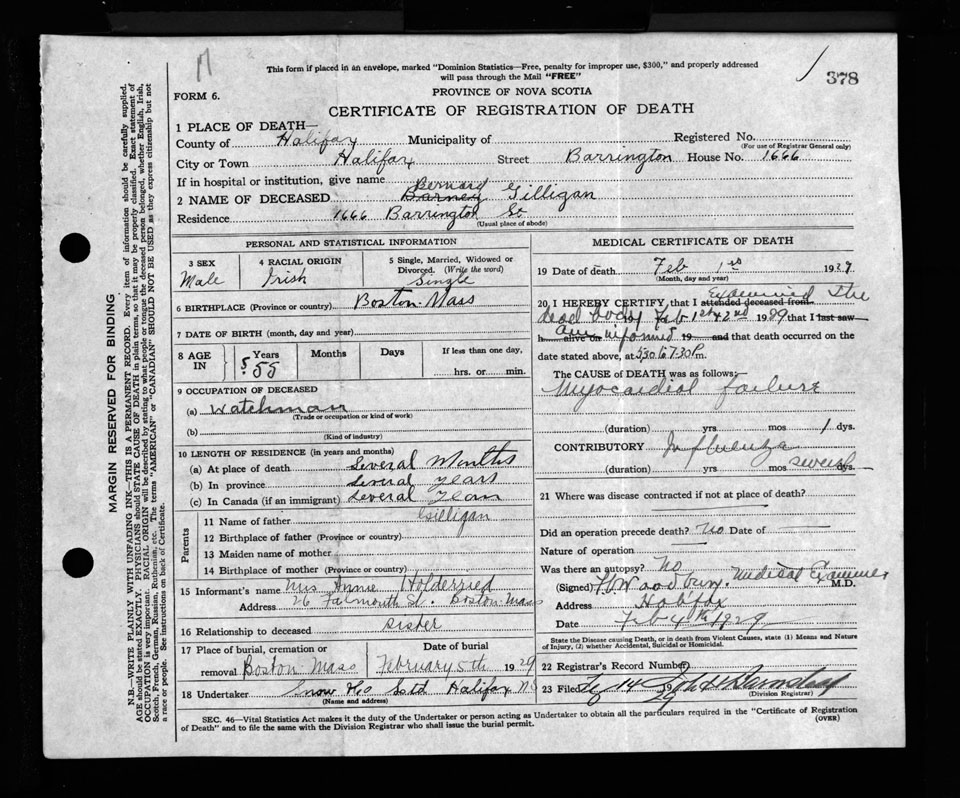 This form if placed in an envelope, marked "Dominion Statistics—Free, penalty for improper use, $300," and properly addressed
will pass through the Mail "FREE"
378
FORM 6.
PROVINCE OF NOVA SCOTIA
CERTIFICATE OF REGISTRATION OF DEATH
MARGIN RESERVED FOR BINDING
N.B.—WRITE PLAINLY WITH UNFADING INK—THIS IS A PERMANENT RECORD. Every item of information should be carefully supplied.
AGE should be stated EXACTLY. PHYSICIANS should STATE CAUSE OF DEATH in plain terms, so that it may be properly classified. Exact statement of
OCCUPATION is very important. RACIAL ORIGIN will be described by stating to what people or tongue the deceased person belonged, whether English, Irish,
Scotch, French, German, Russian, Ruthenian, etc. The terms "AMERICAN" or "CANADIAN" SHOULD NOT BE USED as they express citizenship but not
a race or people. See instructions on back of Certificate.
1 PLACE OF DEATH—
County of Halifax Municipality of Registered No.
(For use of Registrar General only)
City or Town Halifax Street Barrington House No. 1666
If in hospital or institution, give name
Bernard
2 NAME OF DECEASED Barney Gilligan
Residence 1666 Barrington St
(Usual place of abode)
PERSONAL AND STATISTICAL INFORMATION
3 SEX
Male
4 RACIAL ORIGIN
Irish
5 Single, Married, Widowed or
Divorced. (Write the word)
Single
6 BIRTHPLACE (Province or country) Boston Mass
7 DATE OF BIRTH (month, day and year)
8 AGE IN Years Months Days If less than one day,
55 hrs. or min.
9 OCCUPATION OF DECEASED
(a) Watchman
(Trade or occupation or kind of work)
(b)
(Kind of industry)
10 LENGTH OF RESIDENCE (in years and months)
(a) At place of death Several Months
(b) In province Several Years
(c) In Canada (if an immigrant) Several Years
Parents
11 Name of father Gilligan
12 Birthplace of father (Province or country)
13 Maiden name of mother
14 Birthplace of mother (Province or country)
15 Informant's name Mrs Annie Holderried
Address 26 Falmouth St. Boston Mass
16 Relationship to deceased Sister
17 Place of burial, cremation or
removal Boston Mass
Date of burial
February 5th 1929
18 Undertaker Snow & Co Ltd Halifax N.S
(Name and address)
MEDICAL CERTIFICATE OF DEATH
19 Date of death Feb 1st 1929.
(Month, day and year)
20 I HEREBY CERTIFY, that I attended deceased from Examined the
dead body Feb 1st & 2nd 1929 that I last saw
h alive on am informed 19 and that death occurred on the
date stated above, at 5.30 to 7.30 P.m.
The CAUSE of DEATH was as follows:
Myocardial failure
(duration) yrs mos 1 dys.
CONTRIBUTORY Influenza
(duration) yrs mos several dys.
21 Where was disease contracted if not at place of death?
Did an operation precede death? No Date of
Nature of operation
Was there an autopsy? No
(Signed) Woodbury Medical Examiner M.D.
Address Halifax
Date Feb 4th 1929
State the Disease causing Death, or in death from Violent Causes, state (1) Means and Nature
of Injury, (2) whether Accidental, Suicidal or Homicidal.
22 Registrar's Record Number
23 Filed 14 19
(Division Registrar)
SEC. 46—Vital Statistics Act makes it the duty of the Undertaker or person acting as Undertaker to obtain all the particulars required in the "Certificate of Registration
of Death" and to file the same with the Division Registrar who shall issue the burial permit.
(OVER)